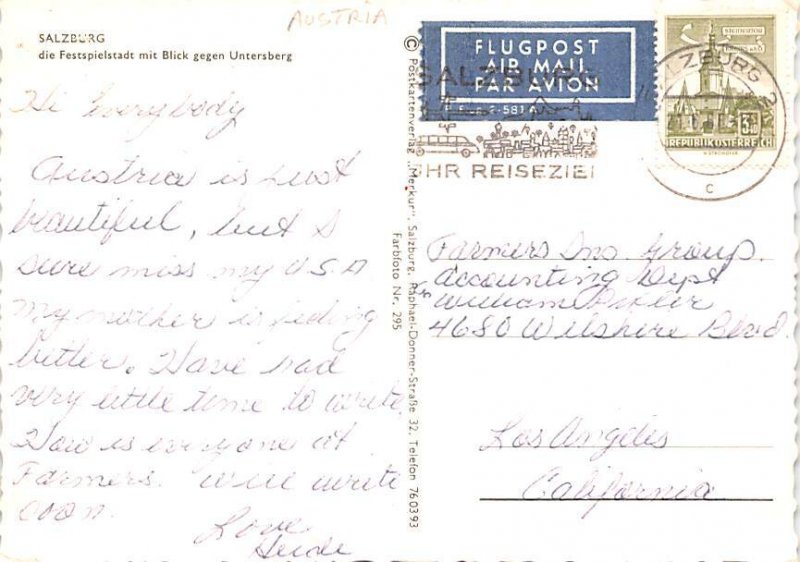 AUSTRIA
SALZBURG
die Festspielstadt mit Blick gegen Untersberg
Hi Everybody
Austria is just
beautiful, but I
sure miss my U.S.A
My mother is feeling
better. Have had
very little time to write,
How is everyone at
Farmers. Will write
soon.
Love
Heide
© Postkartenverlag „Merkur", Salzburg, Raphael-Donner-Straße 32, Telefon 760393
Farbfoto Nr. 295
FLUGPOST
AIR MAIL
PAR AVION
SALZBURG
IHR REISEZIEL
SALZBURG 2
C
3.40
REPUBLIK ÖSTERREICH
Farmers Ins. Group.
Accounting Dept
William
4680 Wilshire Blvd.
Los Angeles
California